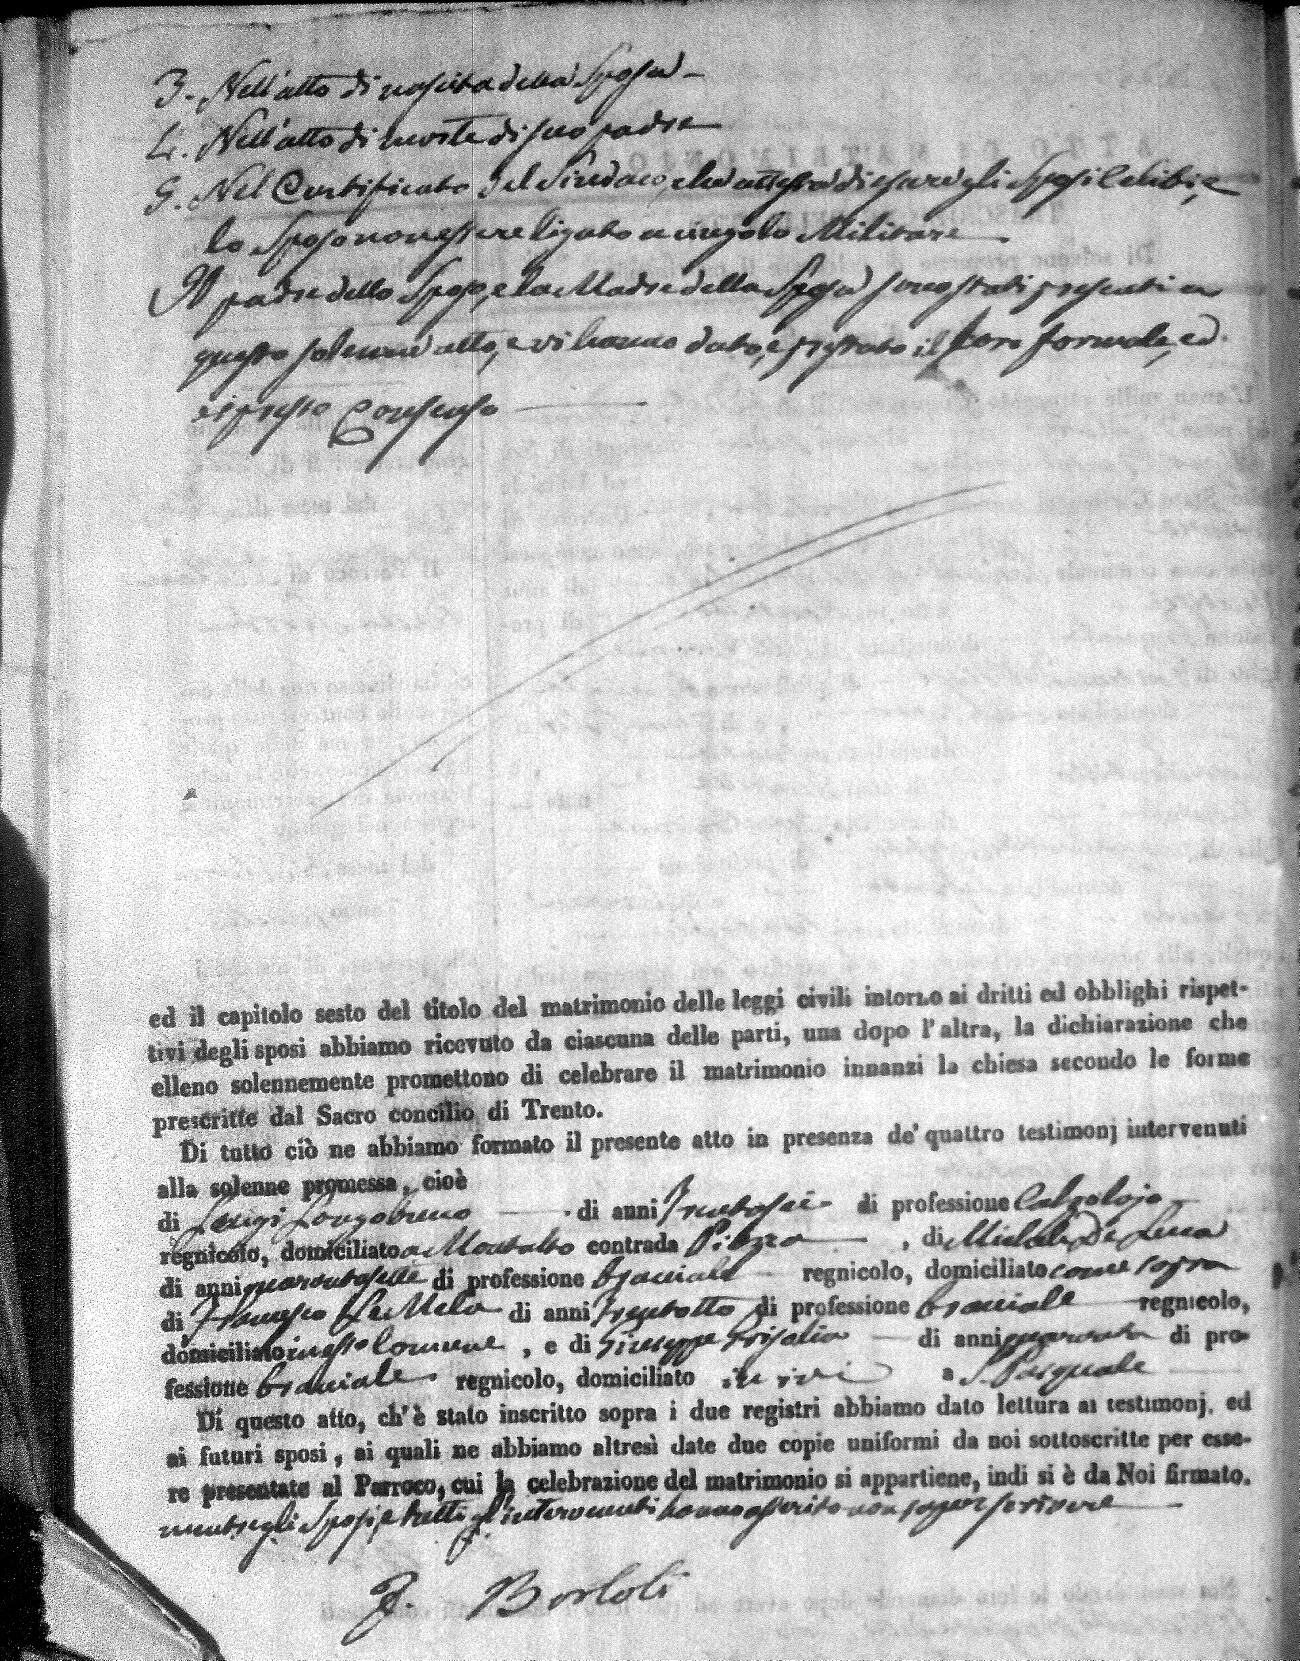 3. Nell'atto di nascita della Sposa
4. Nell'atto di morte di suo padre
5. Nel Certificato del Sindaco, che attesta di essere gli Sposi Celibi, e
lo Sposo non essere ligato a vincolo Militare
Il padre dello Sposo, e la Madre della Sposa sono stati presenti in
questo solenne atto, e vi hanno dato, e prestato il loro formale, ed
espresso Consenso
ed il capitolo sesto del titolo del matrimonio delle leggi civili intorno ai dritti ed obblighi rispet-
tivi degli sposi abbiamo ricevuto da ciascuna delle parti, una dopo l'altra, la dichiarazione che
elleno solennemente promettono di celebrare il matrimonio innanzi la chiesa secondo le forme
prescritte dal Sacro concilio di Trento.
Di tutto ciò ne abbiamo formato il presente atto in presenza de' quattro testimonj intervenuti
alla solenne promessa, cioè
di Luigi Longobucco di anni trentasei di professione Calzolajo
regnicolo, domiciliato a Montalto contrada Piazza, di Michele De Luca
di anni quarantasette di professione bracciale regnicolo, domiciliato come sopra
di Francesco Le Mela di anni trentotto di professione bracciale regnicolo,
domiciliato in questo Comune, e di Giuseppe Grisolia di anni quaranta di pro-
fessione bracciale regnicolo, domiciliato in ivi a S. Pasquale
Di questo atto, ch'è stato inscritto sopra i due registri abbiamo dato lettura ai testimonj, ed
ai futuri sposi, ai quali ne abbiamo altresì date due copie uniformi da noi sottoscritte per esse-
re presentate al Parroco, cui la celebrazione del matrimonio si appartiene, indi si è da Noi firmato.
mentre gli Sposi, e tutti gl'intervenuti hanno asserito non saper scrivere